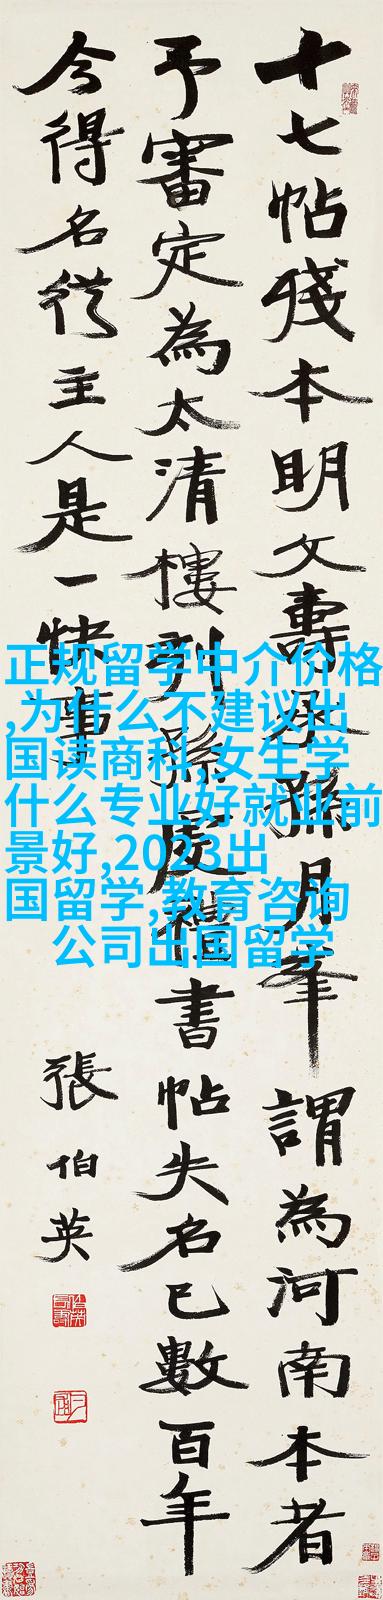 十七帖殘本明文壽承孫月峯謂為河南本者
予審定為太清樓刊孫虔禮書帖失名已數百年
今得名從主人是一快事
張伯英
正规留学中介价格
,为什么不建议出
国读商科,女生学
什么专业好就业前
景好,2023出
国留学,教育咨询
公司出国留学